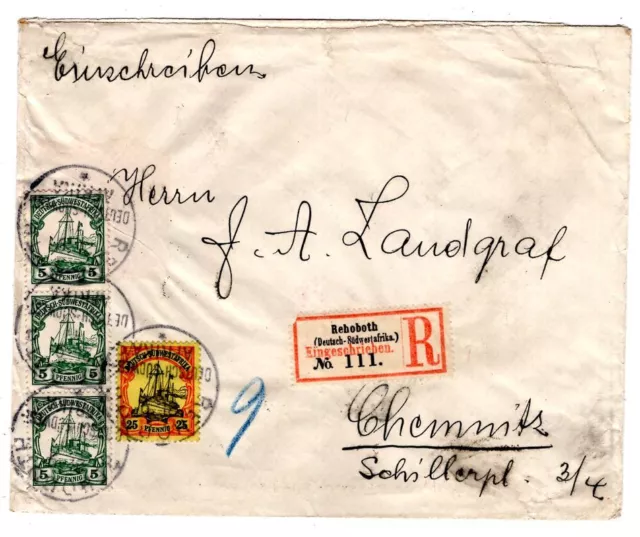 Einschreiben
Herrn
J. A. Landgraf
Rehoboth
(Deutsch-Südwestafrika.)
Eingeschrieben.
R
No. 111.
Chemnitz
Schillerpl. 3/4
9
DEUTSCH-SÜDWESTAFRIKA
5 5
PFENNIG
DEUTSCH-SÜDWESTAFRIKA
5 5
PFENNIG
DEUTSCH-SÜDWESTAFRIKA
5 5
PFENNIG
DEUTSCH-SÜDWESTAFRIKA
25 25
PFENNIG